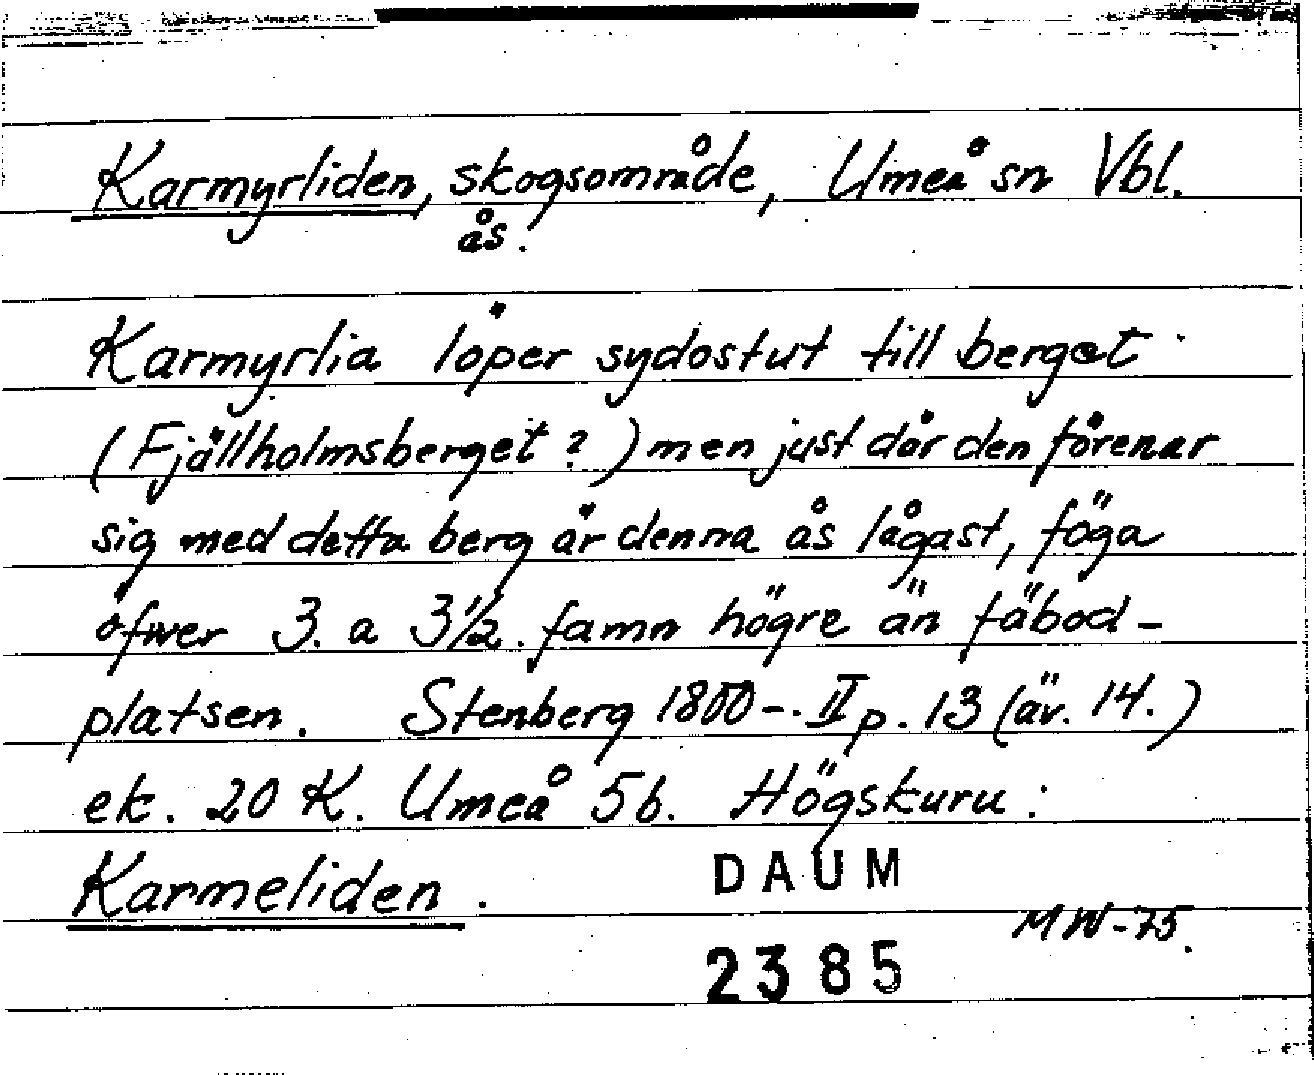 Karmyrliden, skogsområde, Umeå sn Vbl.
ås.
Karmyrlia löper sydostut till berget
(Fjällholmsberget?) men just där den förenar
sig med detta berg är denna ås lågast, föga
öfwer 3. a 3½. famn högre än fäbod-
platsen. Stenberg 1800-. II p. 13 (äv. 14.)
ek. 20 K. Umeå 5b. Högskuru:
Karmeliden.
DAUM
MW-75.
2385